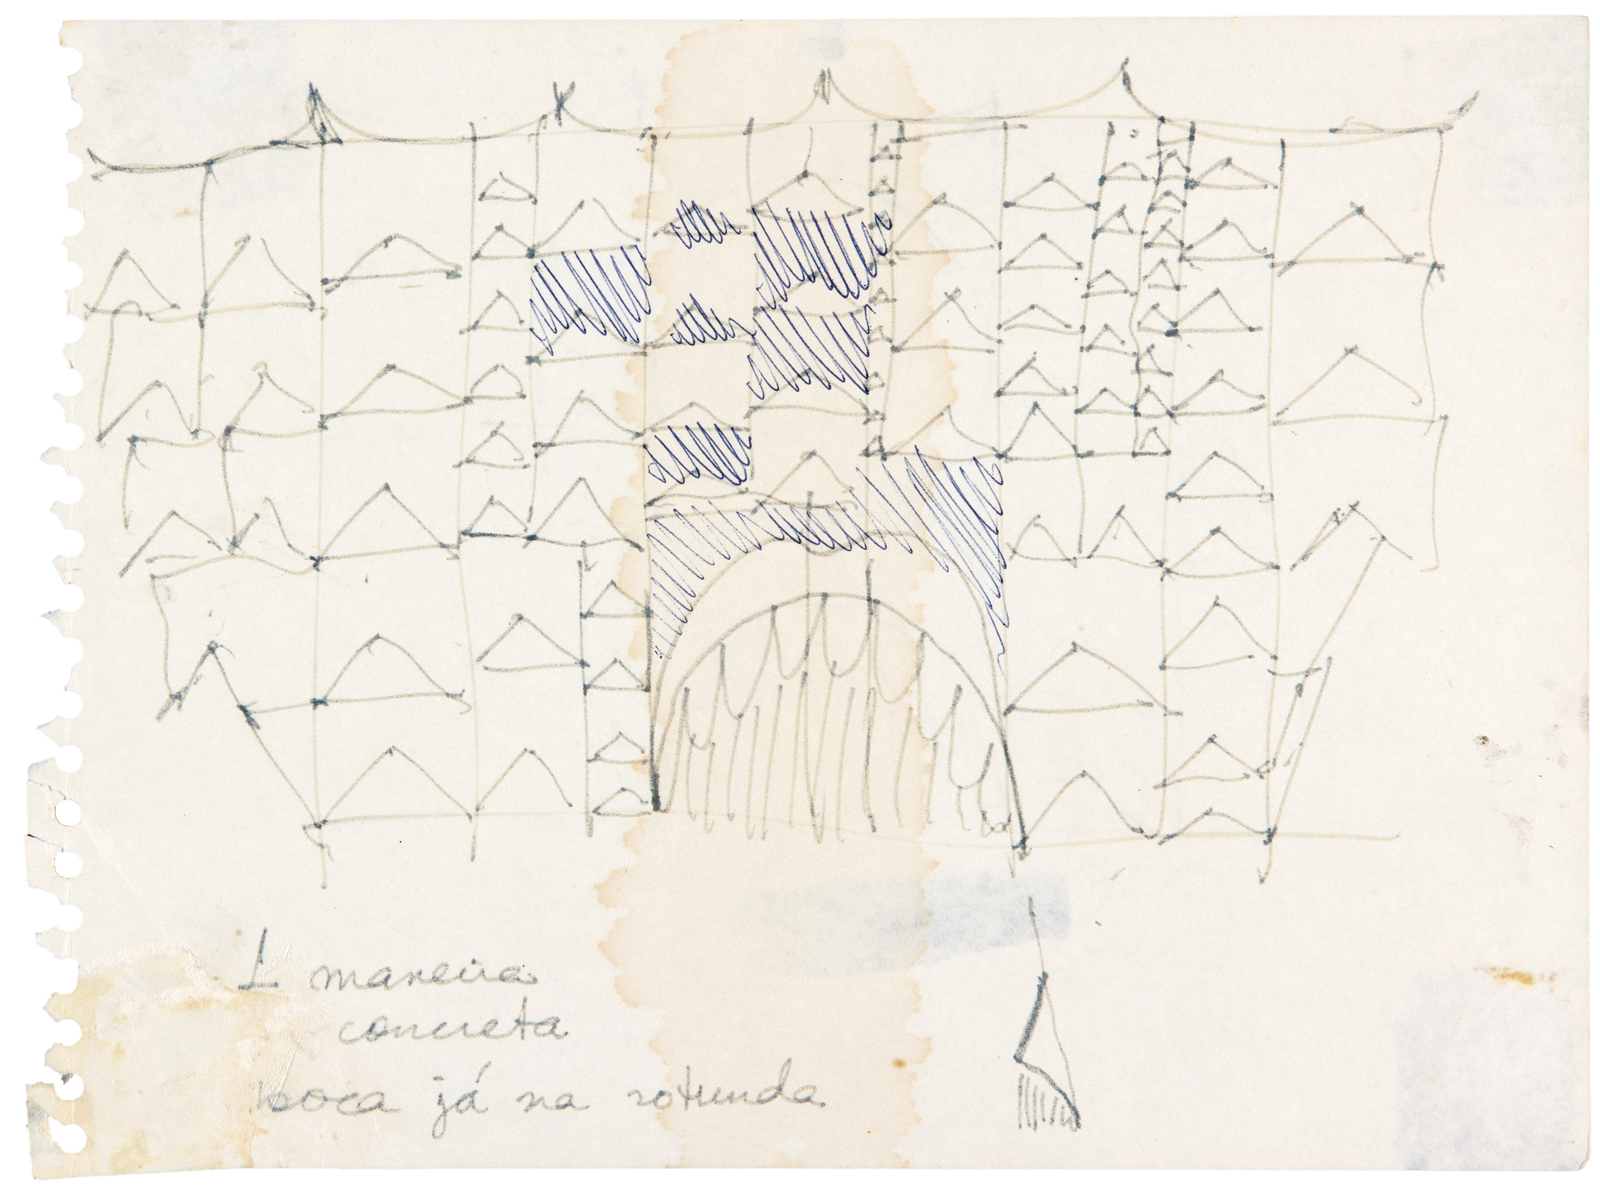 1 maneira
concreta
boca já na rotunda